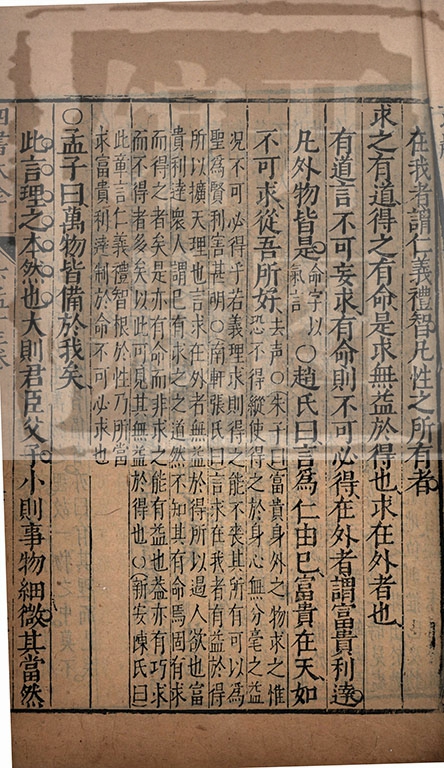 在我者謂仁義禮智凡性之所有者
求之有道得之有命是求無益於得也求在外者也
有道言不可妄求有命則不可必得在外者謂富貴利達
凡外物皆是命字以氣言○趙氏曰言為仁由己富貴在天如
不可求從吾所好去声○朱子曰富貴身外之物求之惟
恐不得縱使得之於身心無分毫之益
況不可必得乎若義理求則得之能不喪其所有可以為
聖為賢利害甚明○南軒張氏曰言求在我者有益於得
所以擴天理也言求在外者無益於得所以遏人欲也富
貴利達衆人謂己有求之之道然不知其有命焉固有求
而得之者矣是亦有命而非求之能有益也葢亦有巧求
而不得者多矣以此可見其無益於得也○新安陳氏曰
此章言仁義禮智根於性乃所當
求富貴利達制於命不可必求也
○孟子曰萬物皆備於我矣
此言理之本然也大則君臣父子小則事物細微其當然